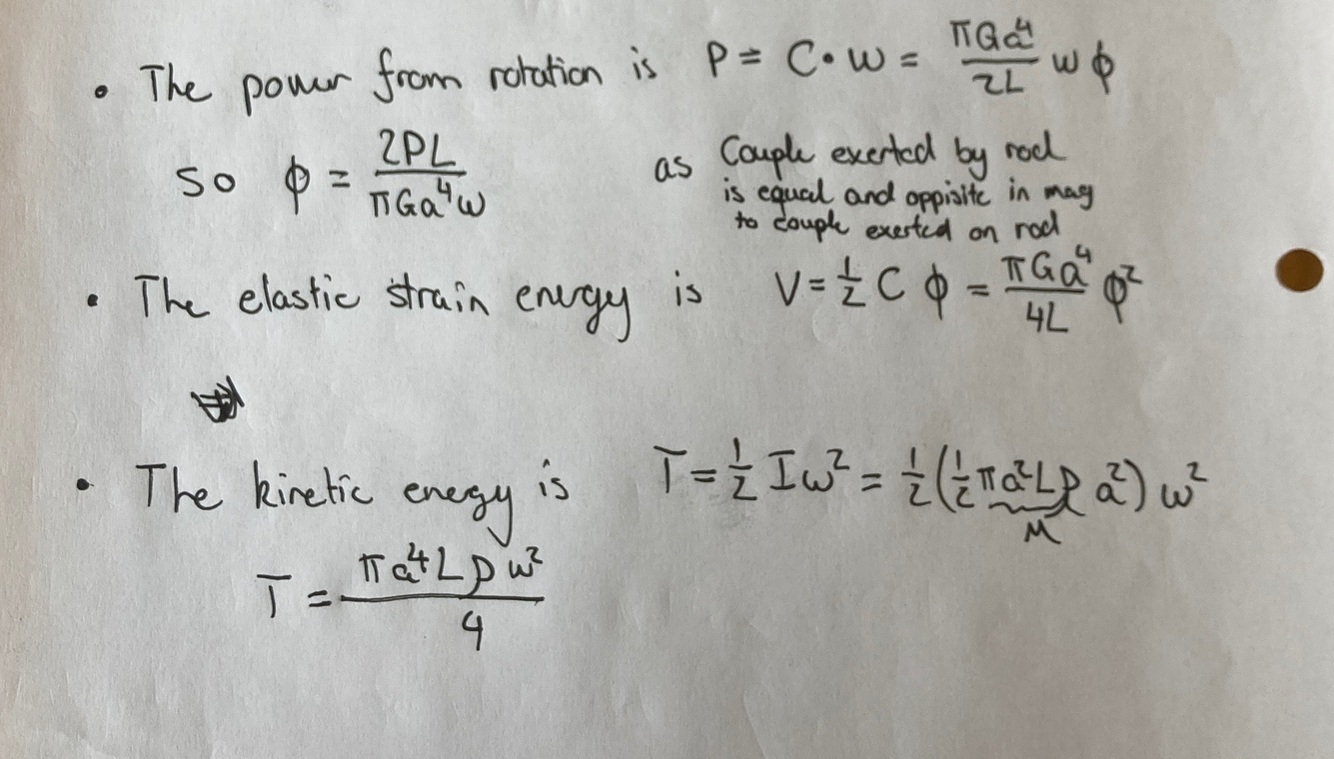 • The power from rotation is P = C•ω = πGa⁴/2L ωϕ
so ϕ = 2PL/πGa⁴ω as Couple exerted by rod
is equal and oppisite in mag
to couple exerted on rod
• The elastic strain energy is V = ½ C ϕ = πGa⁴/4L ϕ²
• The kinetic energy is T = ½ Iω² = ½(½πa²Lρ a²) ω²
M
T = πa⁴Lρω²/4